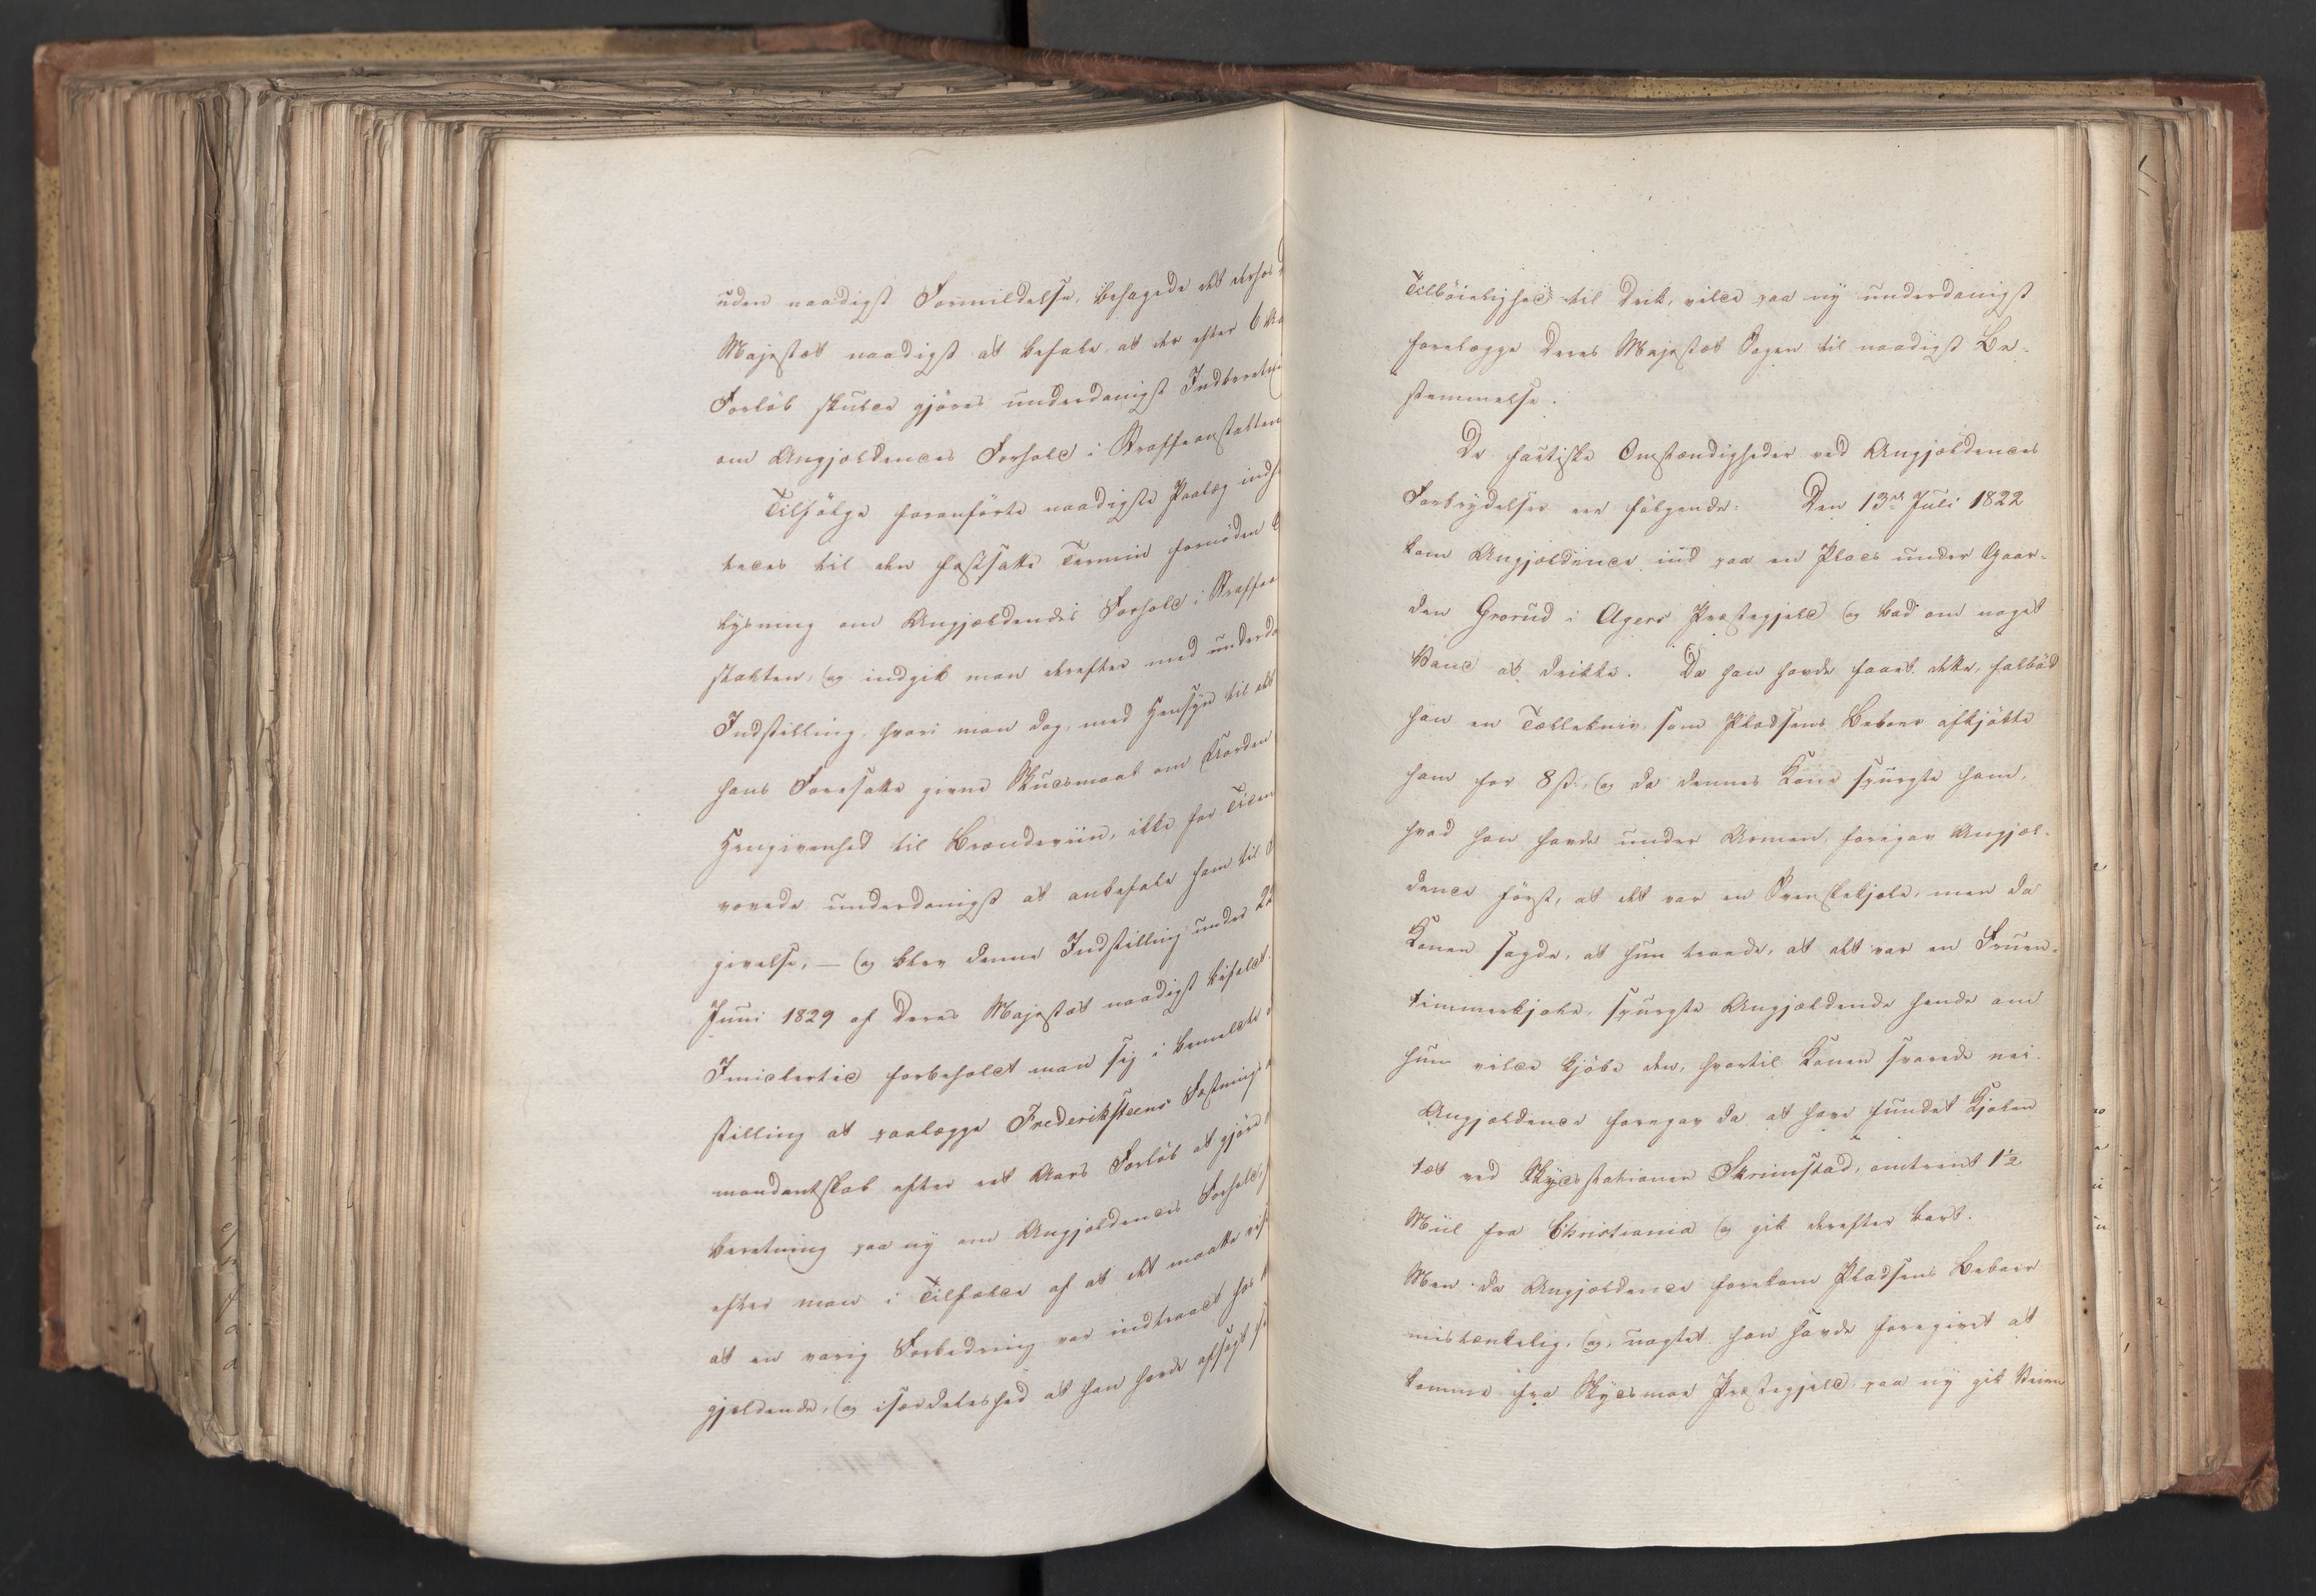 uden naadigst Formildelse, behagede det derhos D
Majestæt naadigst at befale, at der efter 6 Aa
Forløb skulde gjøres underdanigst Indberetni
om Angjældendes Forhold i Straffeanstalten
Tilfølge foranførte naadigste Paalæg indh
tedes til den fastsatte Termin fornøden O
lysning om Angjældendes Forhold i Straffea
stalten, og indgik man derefter med underda
Indstilling, hvori man dog, med Hensyn til det
hans Foresatte givne Skudsmaal om
Hengivenhed til Brændeviin, ikke for Tiden
vovede underdanigst at anbefale ham til
givelse, — og blev denne Indstilling under 22
Juni 1829 af Deres Majestæt naadigst bifaldt.
Imidlertid forbeholdt man sig i bemeldte
stilling at paalægge Frederiksteens Fæstnings
mandantskab efter eet Aars Forløb at gjøre
beretning paa ny om Angjældendes Forhold,
efter man i Tilfælde af at det maatte vis
at en varig Forbedring var indtraadt hos
gjældende, og isærdeleshed at han havde aflagt s
Tilbøielighed til Drik, vilde paa ny underdanigst
forelægge Deres Majestæt Sagen til naadigst Be-
stemmelse.
De factiske Omstændigheder ved Angjældendes
Forbrydelser ere følgende: Den 13de Juli 1822
kom Angjældende ind paa en Plads under Gaar-
den Grorud i Agers Præstegjeld og bad om noget
Vand at drikke. Da han havde faaet dette, falbød
han en Tællekniv, som Pladsens Beboer afkjøbte
ham for 8 ß, og da dennes Kone spurgte ham,
hvad han havde under Armen, foregav Angjæl-
dende først, at det var en Svenskekjole, men da
Konen sagde, at hun troede, at det var en Fruen-
timmerkjole, spurgte Angjældende hende om
hun vilde kjøbe den, hvortil Konen svarede nei.
Angjældende foregav da at have fundet Kjolen
tæt ved Skydsstationen Skrimstad, omtrent 1½
Miil fra Christiania og gik derefter bort.
Men da Angjældende forekom Pladsens Beboer
mistænkelig, og, uagtet han havde foregivet at
komme fra Skydsmoe Præstegjeld, paa ny gik Veien